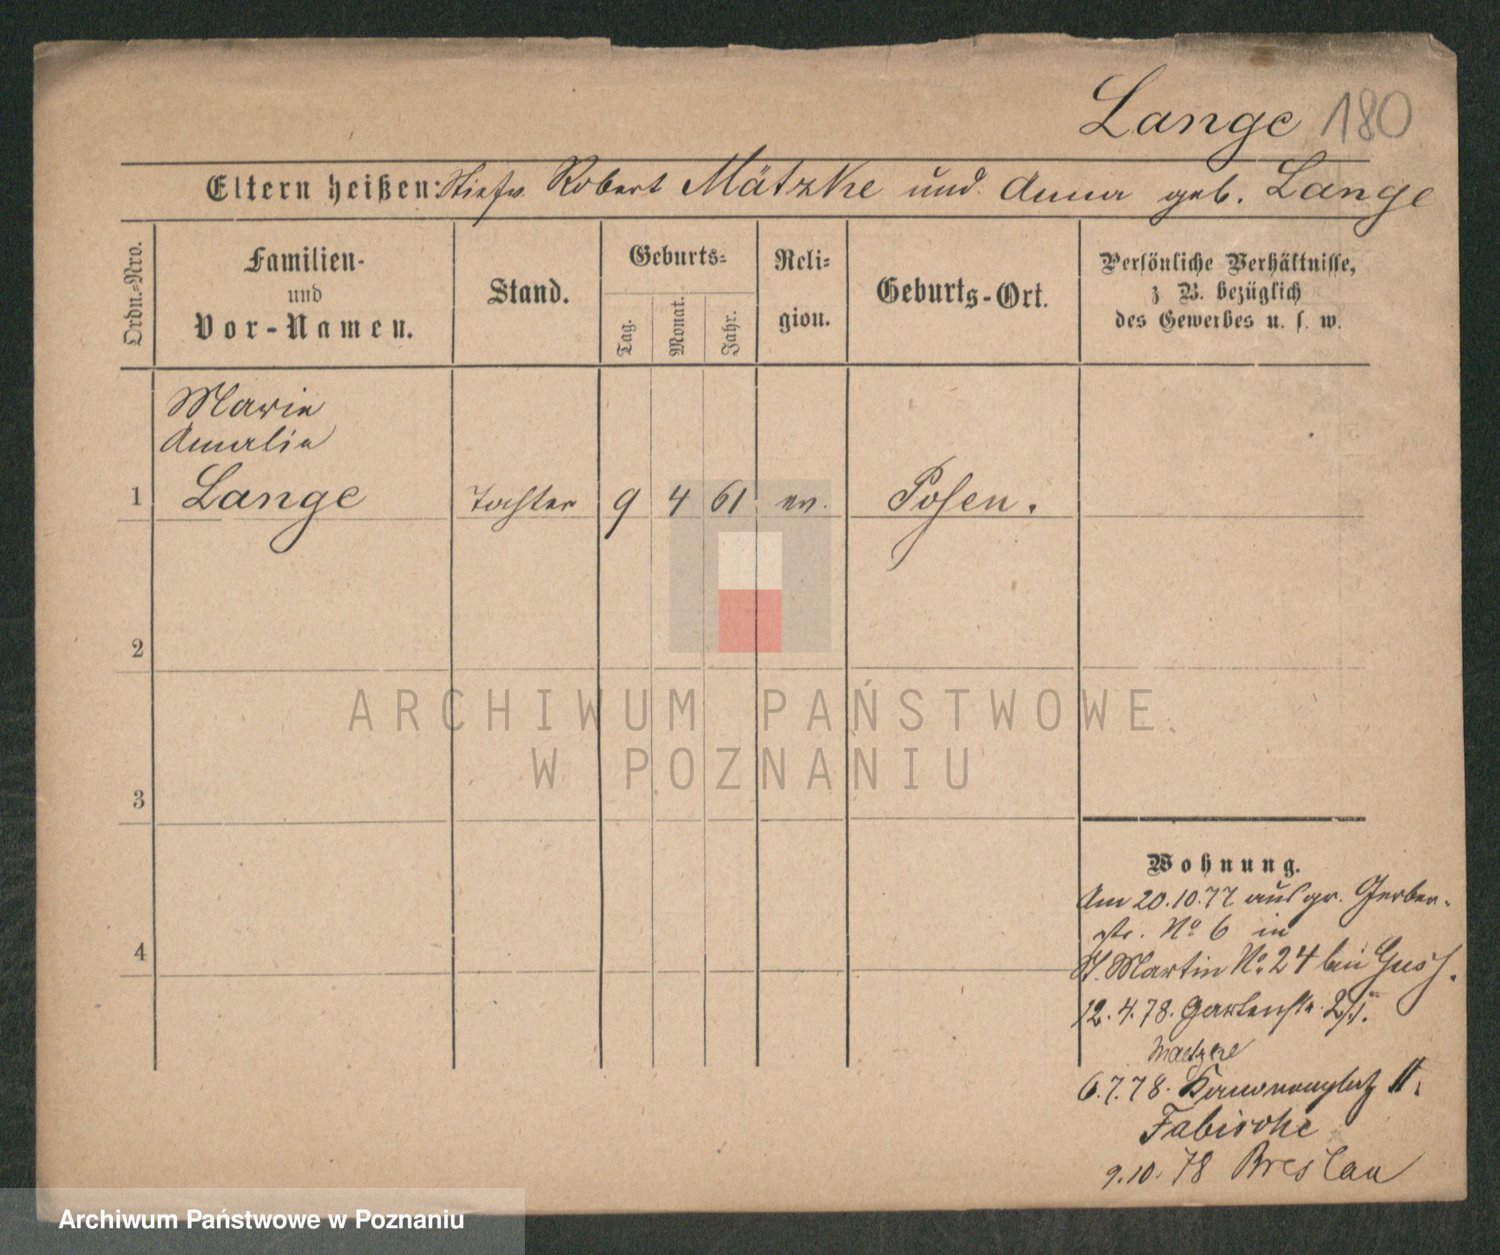 Lange 180
Eltern heißen: Stiefv. Robert Mätzke und Anna geb. Lange
Ordn.-Nro.
Familien-
und
Vor-Namen.
Stand.
Geburts-
Tag.
Monat.
Jahr.
Reli-
gion.
Geburts-Ort.
Persönliche Verhältnisse,
z B. bezüglich
des Gewerbes u. s. w.
Marie
Amalie
1 Lange Tochter 9 4 61 ev. Posen.
2
3
4
ARCHIWUM PAŃSTWOWE
W POZNANIU
Wohnung.
Am 20.10.77 aus gr. Gerber-
str. No 6 in
St. Martin No. 24 bei
12.4.78. Gartenstr.
Maetzke
6.7.78. 11.
9.10.78 Breslau
Archiwum Państwowe w Poznaniu